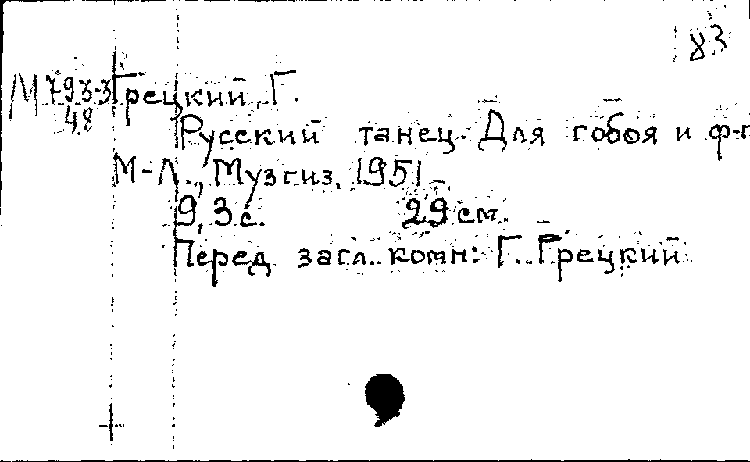 83
М793-3 Грецкий, Г.
48
Русский танец. Для гобоя и ф-п
М-Л., Музгиз, 1951
9, 3 с. 29 см.
Перед загл. комп: Г. Грецкий